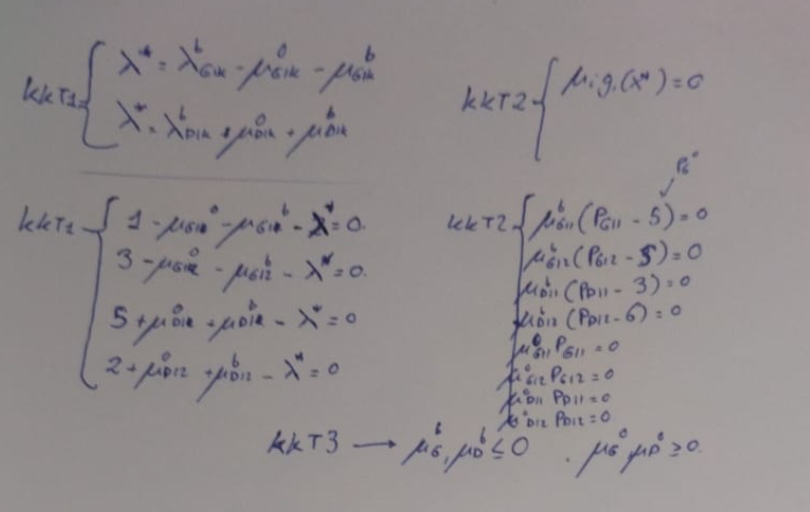 KKT1 { λ* = λ^b_Gik - μ^0_Gik - μ^b_Gik
λ* = λ^b_Dik + μ^0_Dik + μ^b_Dik
KKT2 { μi gi(x*) = 0
KKT1 { 1 - μ^0_G11 - μ^b_G11 - λ* = 0.
3 - μ^0_G12 - μ^b_G12 - λ* = 0.
5 + μ^0_D11 + μ^b_D11 - λ* = 0
2 + μ^0_D12 + μ^b_D12 - λ* = 0
KKT2 { μ^b_G11 (P_G11 - 5) = 0
μ^b_G12 (P_G12 - 5) = 0
μ^b_D11 (P_D11 - 3) = 0
μ^b_D12 (P_D12 - 6) = 0
μ^0_G11 P_G11 = 0
μ^0_G12 P_G12 = 0
μ^0_D11 P_D11 = 0
μ^0_D12 P_D12 = 0
KKT3 → μ^b_G, μ^b_D ≤ 0 . μ^0_G μ^0_D ≥ 0.